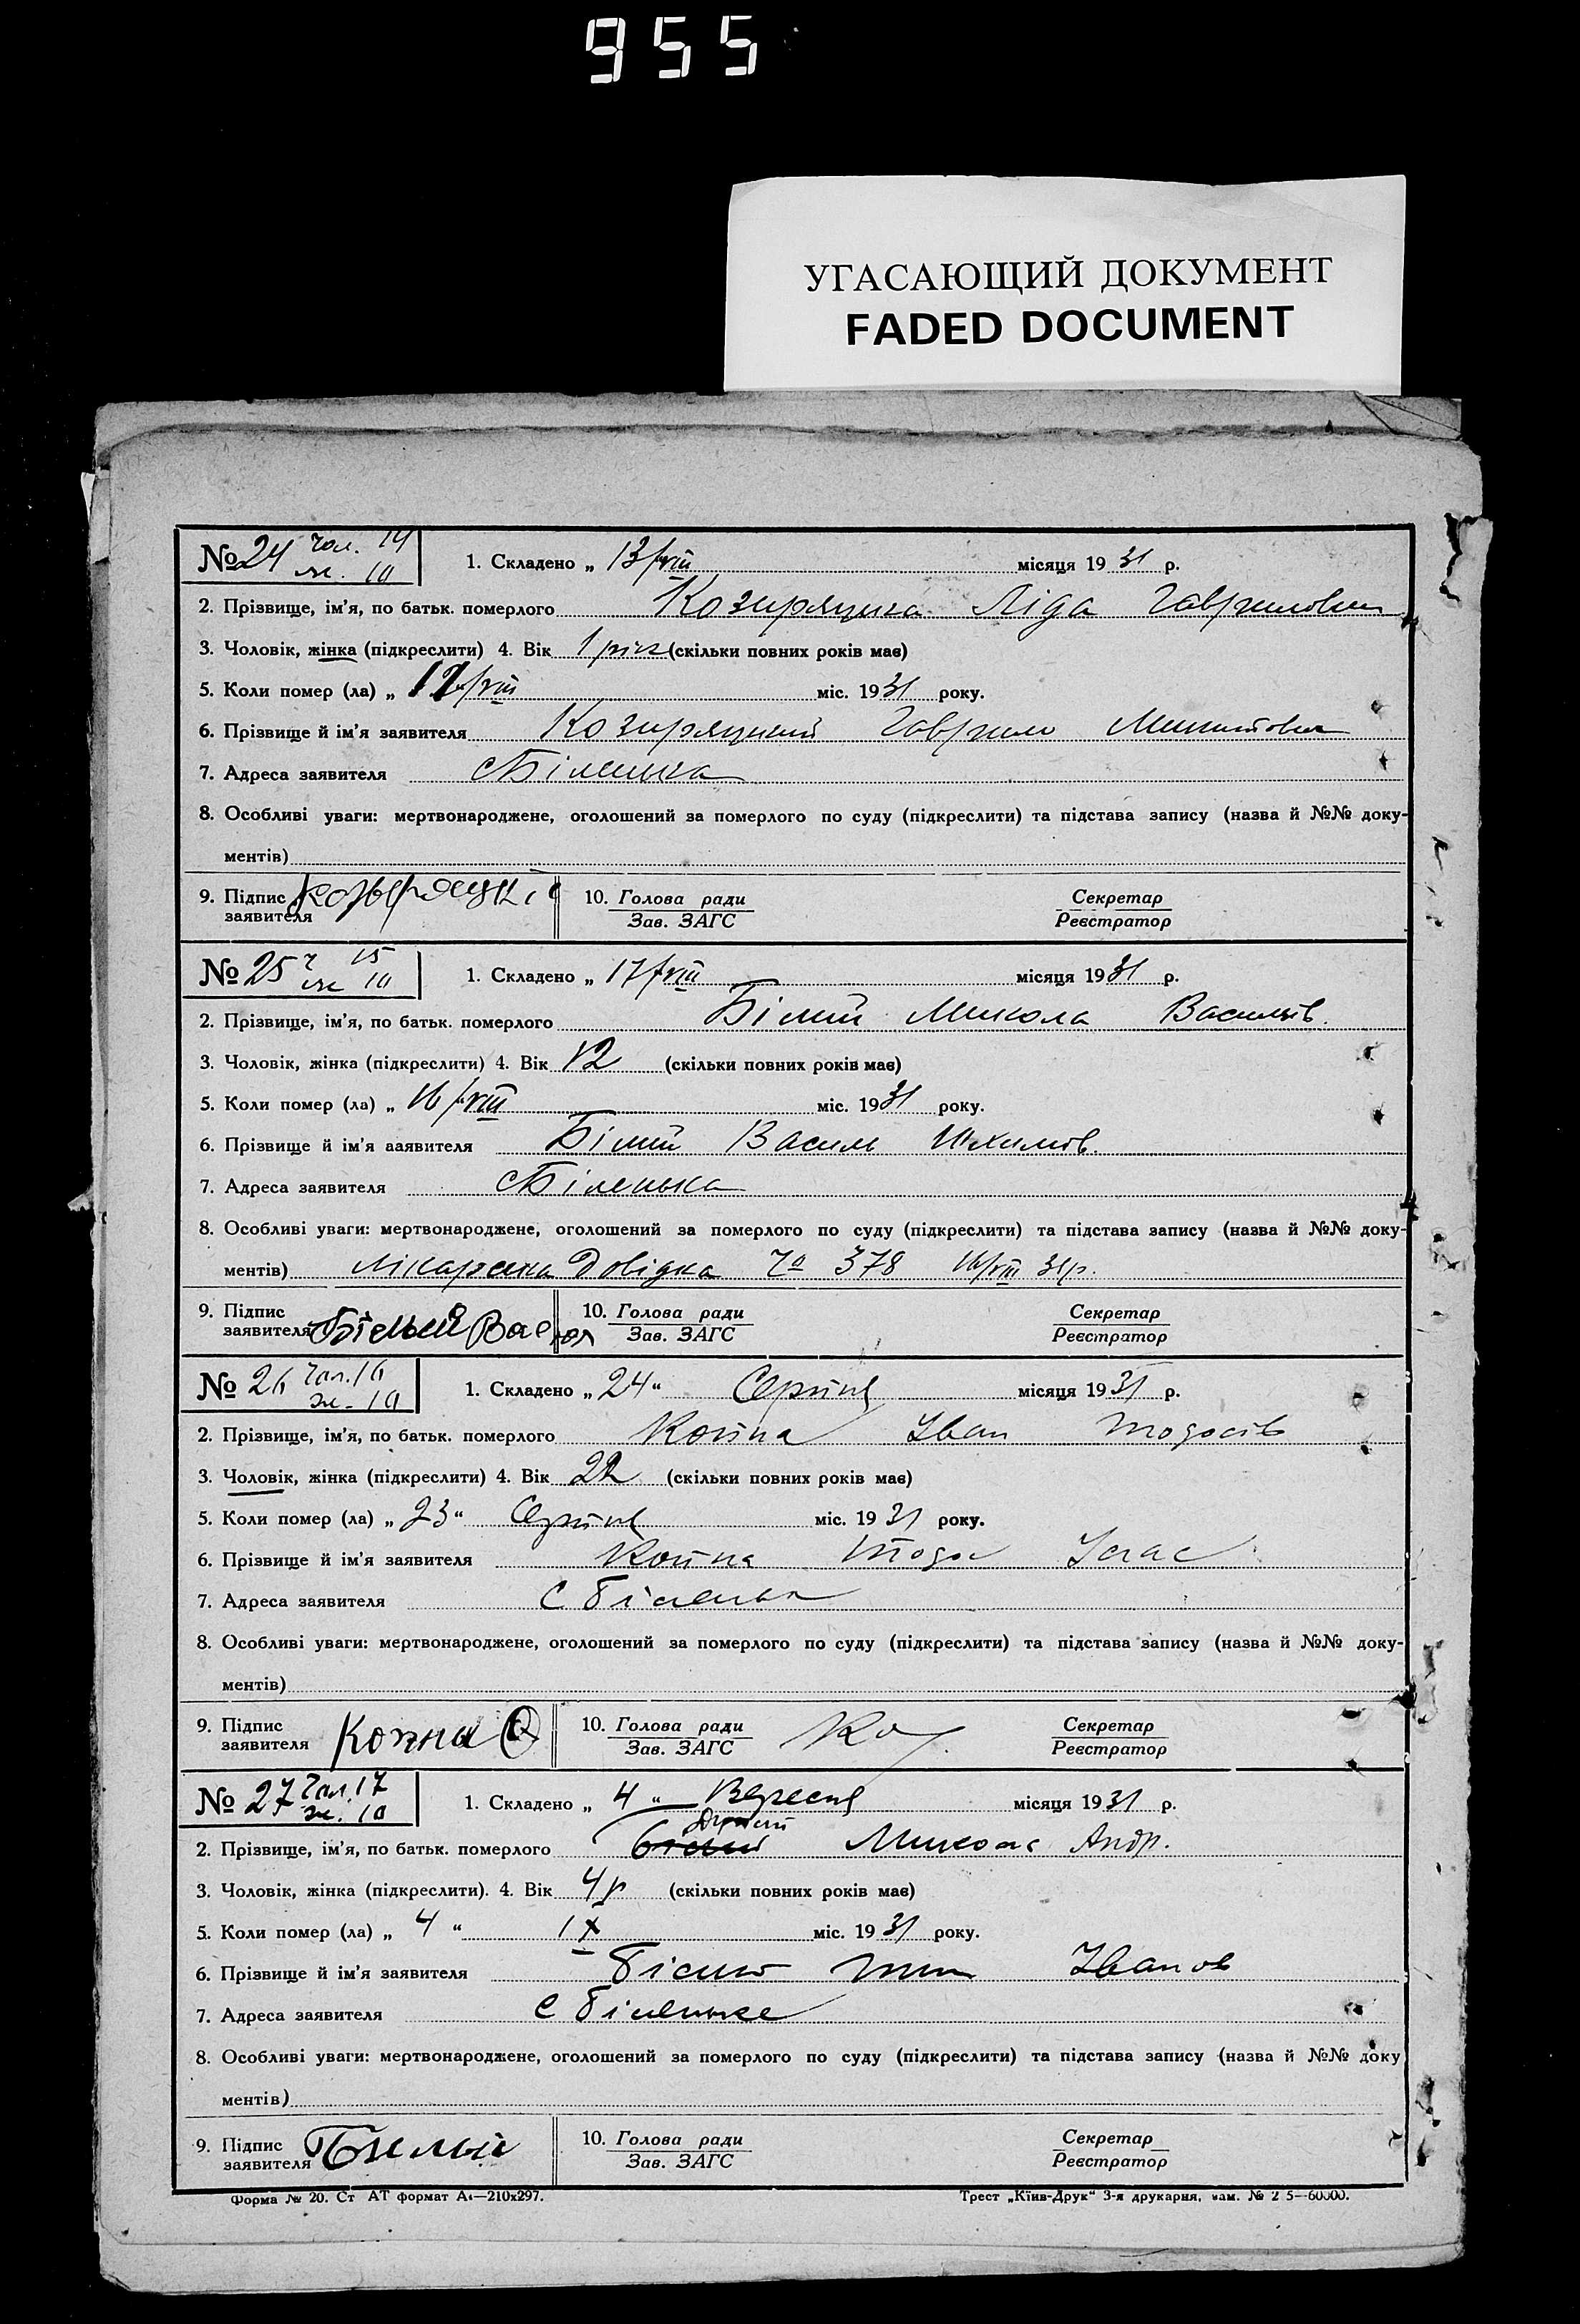 955
УГАСАЮЩИЙ ДОКУМЕНТ
FADED DOCUMENT
№ 24 чол. 14
ж. 10
1. Складено „ 13/VIII місяця 1931 р.
2. Прізвище, ім’я, по батьк. померлого Козиряцька Ліда Гаврилови
3. Чоловік, жінка (підкреслити) 4. Вік 1 рік (скільки повних років має)
5. Коли помер (ла) „ 12/VIII міс. 1931 року.
6. Прізвище й ім’я заявителя Козиряцький Гаврило
7. Адреса заявителя с Біленька
8. Особливі уваги: мертвонароджене, оголошений за померлого по суду (підкреслити) та підстава запису (назва й №№ доку-
ментів)
9. Підпис заявителя
10. Голова ради
Зав. ЗАГС
Секретар
Реєстратор
№ 25 ч 15
ж 10
1. Складено „ 17/VIII місяця 1931 р.
2. Прізвище, ім’я, по батьк. померлого Білий Микола Васильів.
3. Чоловік, жінка (підкреслити) 4. Вік 12 (скільки повних років має)
5. Коли помер (ла) „ 16/VIII міс. 1931 року.
6. Прізвище й ім’я ааявителя Білий Василь
7. Адреса заявителя с Біленька
8. Особливі уваги: мертвонароджене, оголошений за померлого по суду (підкреслити) та підстава запису (назва й №№ доку-
ментів) Лікарська Довідка Чо 378 16/VIII 31р.
9. Підпис заявителя Білый
10. Голова ради
Зав. ЗАГС
Секретар
Реєстратор
№ 26 чол. 16
ж. 10
1. Складено „ 24 “ Серпня місяця 1931 р.
2. Прізвище, ім’я, по батьк. померлого Іван Тодосів
3. Чоловік, жінка (підкреслити) 4. Вік 22 (скільки повних років має)
5. Коли помер (ла) „ 23 “ Серпня міс. 1931 року.
6. Прізвище й ім’я заявителя Тодос
7. Адреса заявителя с Біленька
8. Особливі уваги: мертвонароджене, оголошений за померлого по суду (підкреслити) та підстава запису (назва й №№ доку-
ментів)
9. Підпис заявителя
10. Голова ради
Зав. ЗАГС
Секретар
Реєстратор
№ 27 чол. 17
ж. 10
1. Складено „ 4 “ Вересня місяця 1931 р.
2. Прізвище, ім’я, по батьк. померлого Микола Андр.
3. Чоловік, жінка (підкреслити). 4. Вік 4р (скільки повних років має)
5. Коли помер (ла) „ 4 “ IX міс. 1931 року.
6. Прізвище й ім’я заявителя Іванов
7. Адреса заявителя с Біленьке
8. Особливі уваги: мертвонароджене, оголошений за померлого по суду (підкреслити) та підстава запису (назва й №№ доку
ментів)
9. Підпис заявителя
10. Голова ради
Зав. ЗАГС
Секретар
Реєстратор
Форма № 20. Ст АТ формат А4—210х297.
Трест „Київ-Друк“ 3-я друкарня,